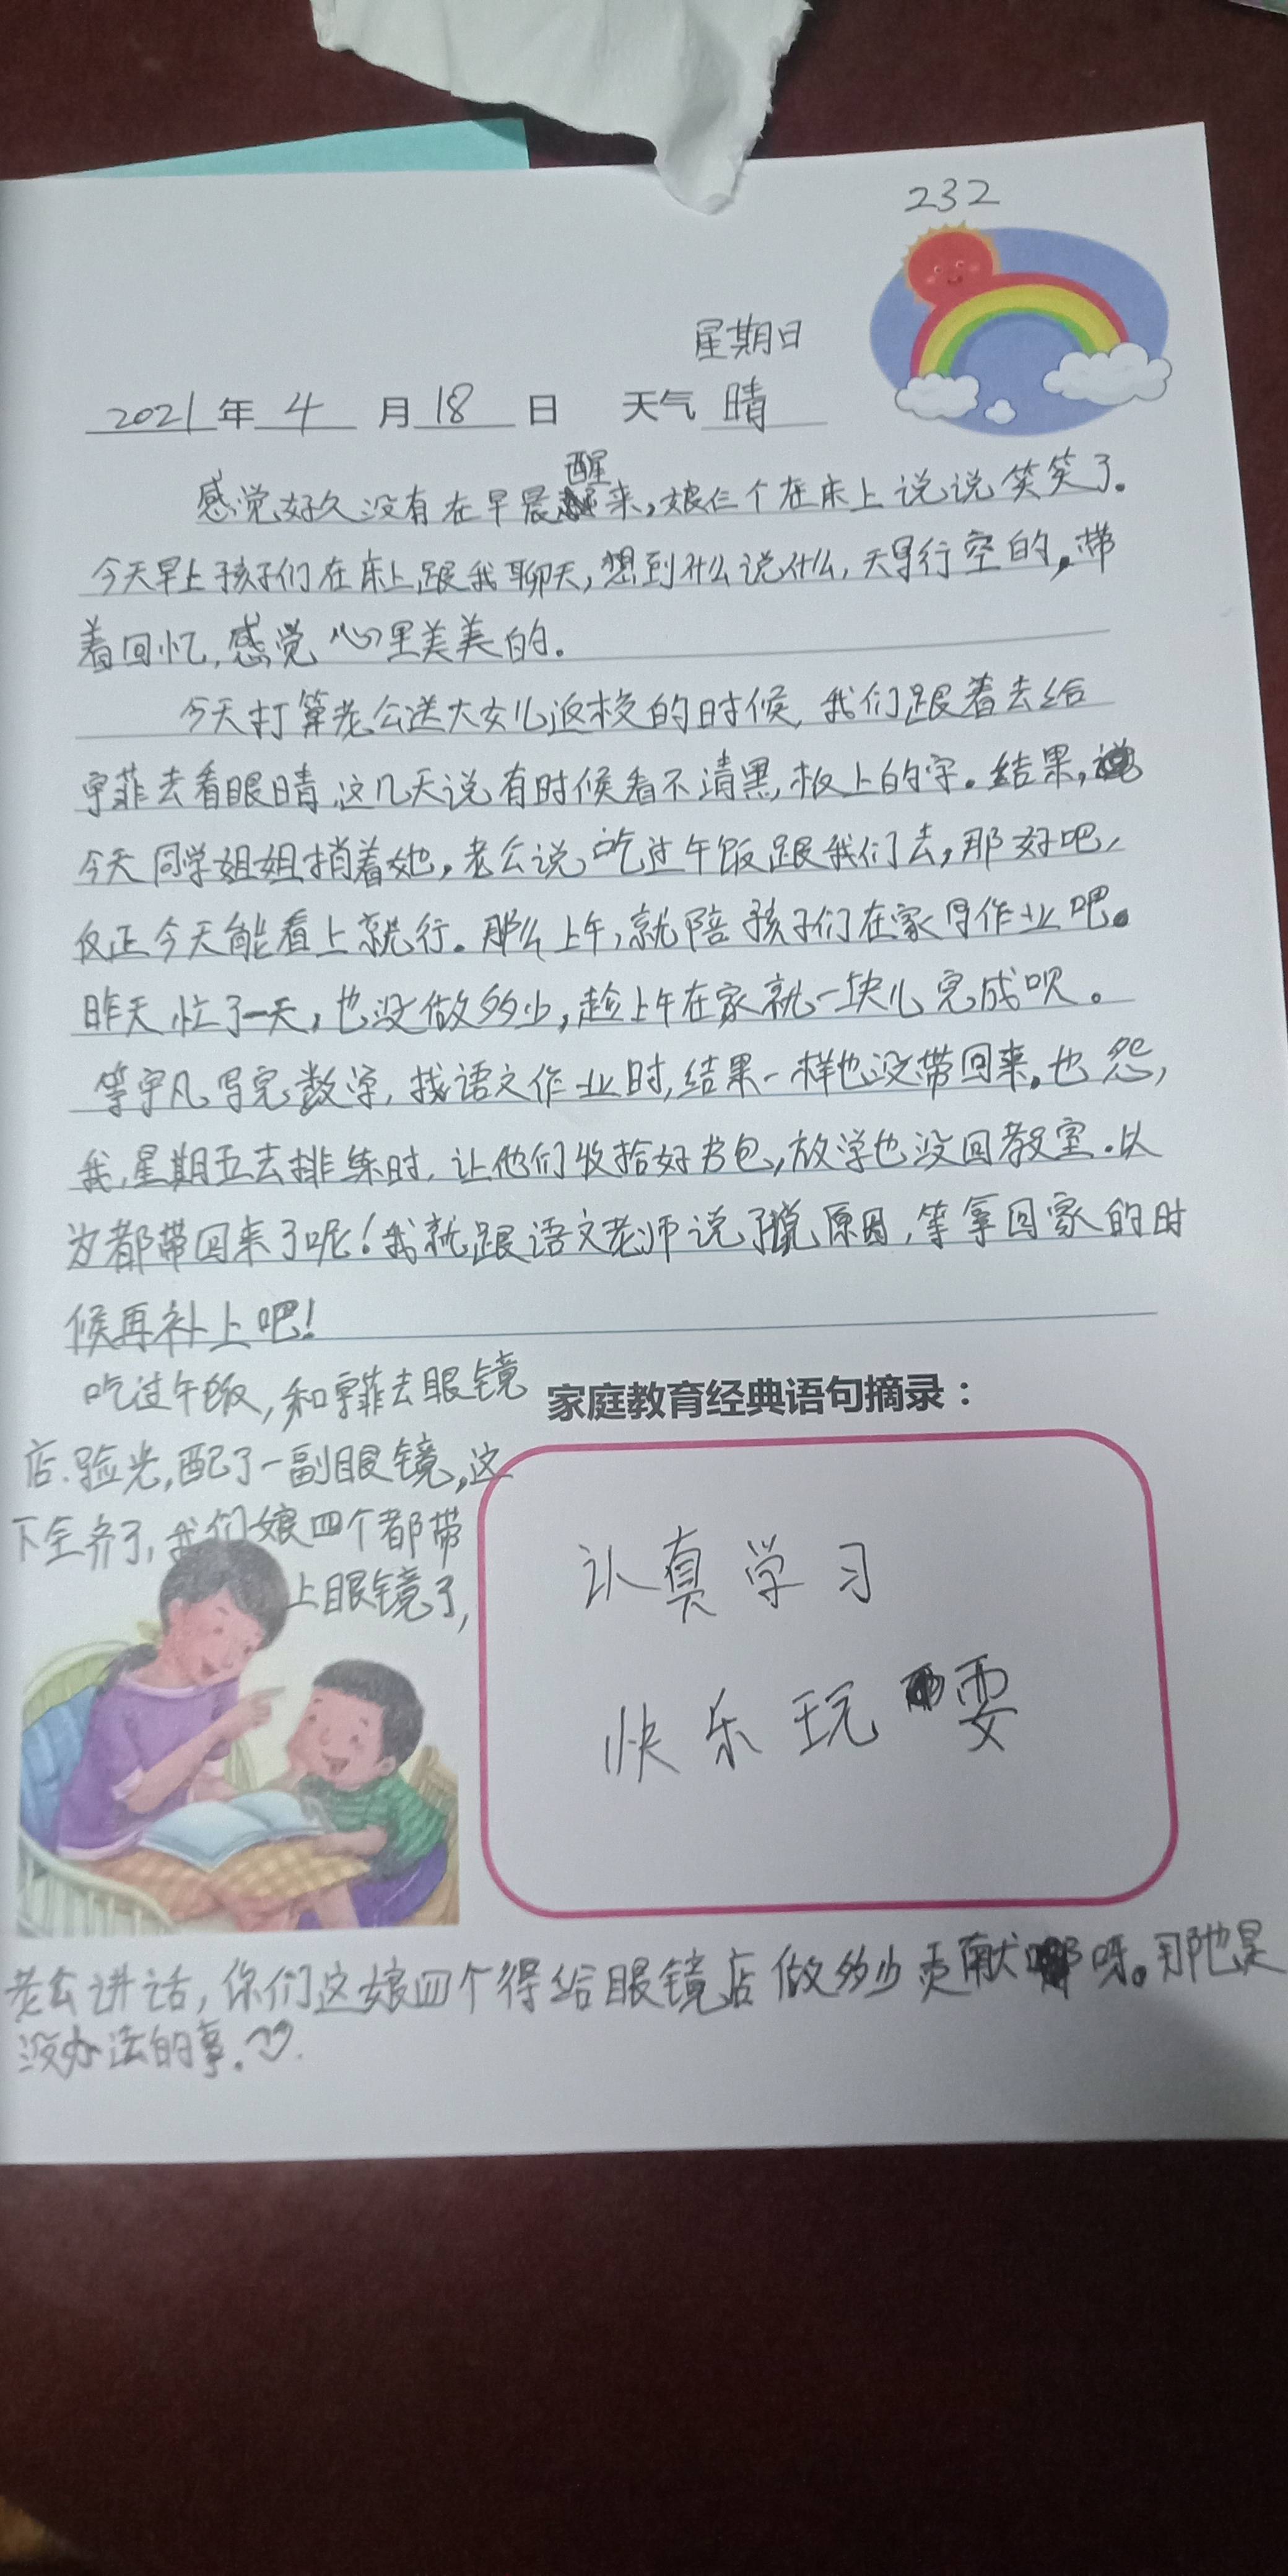 232
星期日
2021年4月18日 天气晴
感觉好久没有在早晨醒来,娘仨个在床上说说笑笑了。
今天早上孩子们在床上跟我聊天,想到什么说什么,天马行空的,带
着回忆,感觉心里美美的。
今天打算老公送大女儿返校的时候,我们跟着去给
宇菲去看眼睛,这几天说有时候看不清黑板上的字。结果,
今天同学姐姐捎着她,老公说吃过午饭跟我们去,那好吧,
反正今天能看上就行。那么上午,就陪孩子们在家写作业吧。
昨天忙了一天,也没做多少,趁上午在家就一块儿完成呗。
等宇凡写完数学,找语文作业时,结果一样也没带回来。也怨,
我,星期五去排练时,让他们收拾好书包,放学也没回教室.以
为都带回来了呢!我就跟语文老师说了说原因,等拿回家的时
候再补上吧!
吃过午饭,和宇菲去眼镜
店.验光,配了一副眼镜,这
下全齐了,我们娘四个都带
上眼镜了,
家庭教育经典语句摘录:
认真学习
快乐玩耍
老公讲话,你们这娘四个得给眼镜店做多少贡献呀。那也是
没办法的事.